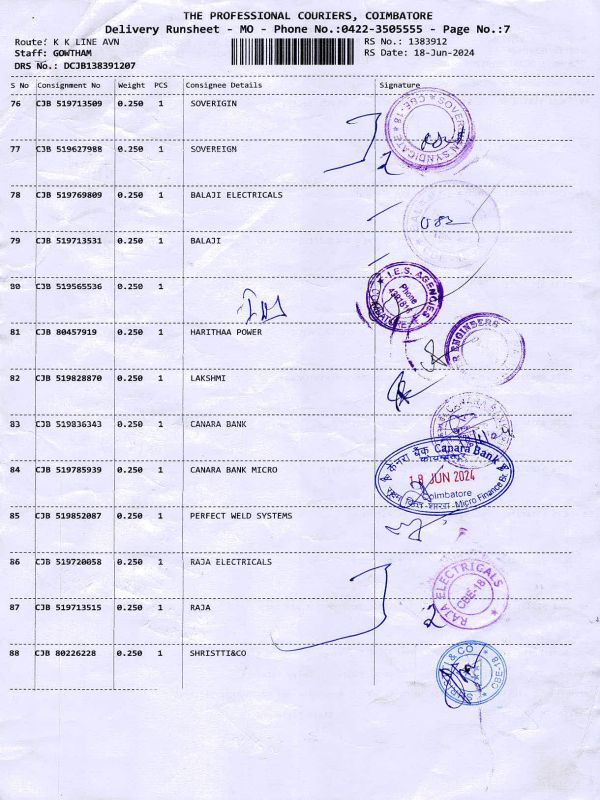 THE PROFESSIONAL COURIERS, COIMBATORE
Delivery Runsheet - MO - Phone No.:0422-3505555 - Page No.:7
Route: K K LINE AVN RS No.: 1383912
Staff: GOWTHAM RS Date: 18-Jun-2024
DRS No.: DCJB138391207
S No Consignment No Weight PCS Consignee Details Signature
76 CJB 519713509 0.250 1 SOVERIGIN
SOVEREIGN SYNDICATE CBE-18
77 CJB 519627988 0.250 1 SOVEREIGN
2
78 CJB 519769809 0.250 1 BALAJI ELECTRICALS
79 CJB 519713531 0.250 1 BALAJI
80 CJB 519565536 0.250 1
I.E.S. AGENCIES
Phone
81 CJB 80457919 0.250 1 HARITHAA POWER
ENGINEERS
82 CJB 519828870 0.250 1 LAKSHMI
83 CJB 519836343 0.250 1 CANARA BANK
84 CJB 519785939 0.250 1 CANARA BANK MICRO
केनरा बैंक Canara Bank
18 JUN 2024
Coimbatore
Micro Finance Br.
85 CJB 519852087 0.250 1 PERFECT WELD SYSTEMS
86 CJB 519720058 0.250 1 RAJA ELECTRICALS
RAJA ELECTRICALS
CBE-18
87 CJB 519713515 0.250 1 RAJA
2
88 CJB 80226228 0.250 1 SHRISTTI&CO
CBE-18